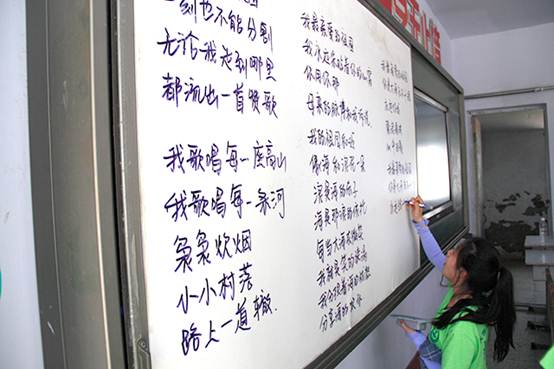 刻也不能分割
无论我走到哪里
都流出一首赞歌
我歌唱每一座高山
我歌唱每一条河
袅袅炊烟
小小村落
路上一道辙
我最亲爱的祖国
我永远紧贴着你的心窝
你用你那
母亲的脉搏和我诉说
我的祖国和我
像海和浪花一朵
浪是海的赤子
海是那浪的依托
每当大海在微笑
我就是笑的旋涡
我分担着海的忧愁
分享海的欢乐
我最亲爱的祖国
永远给我
碧浪清波
心中的歌